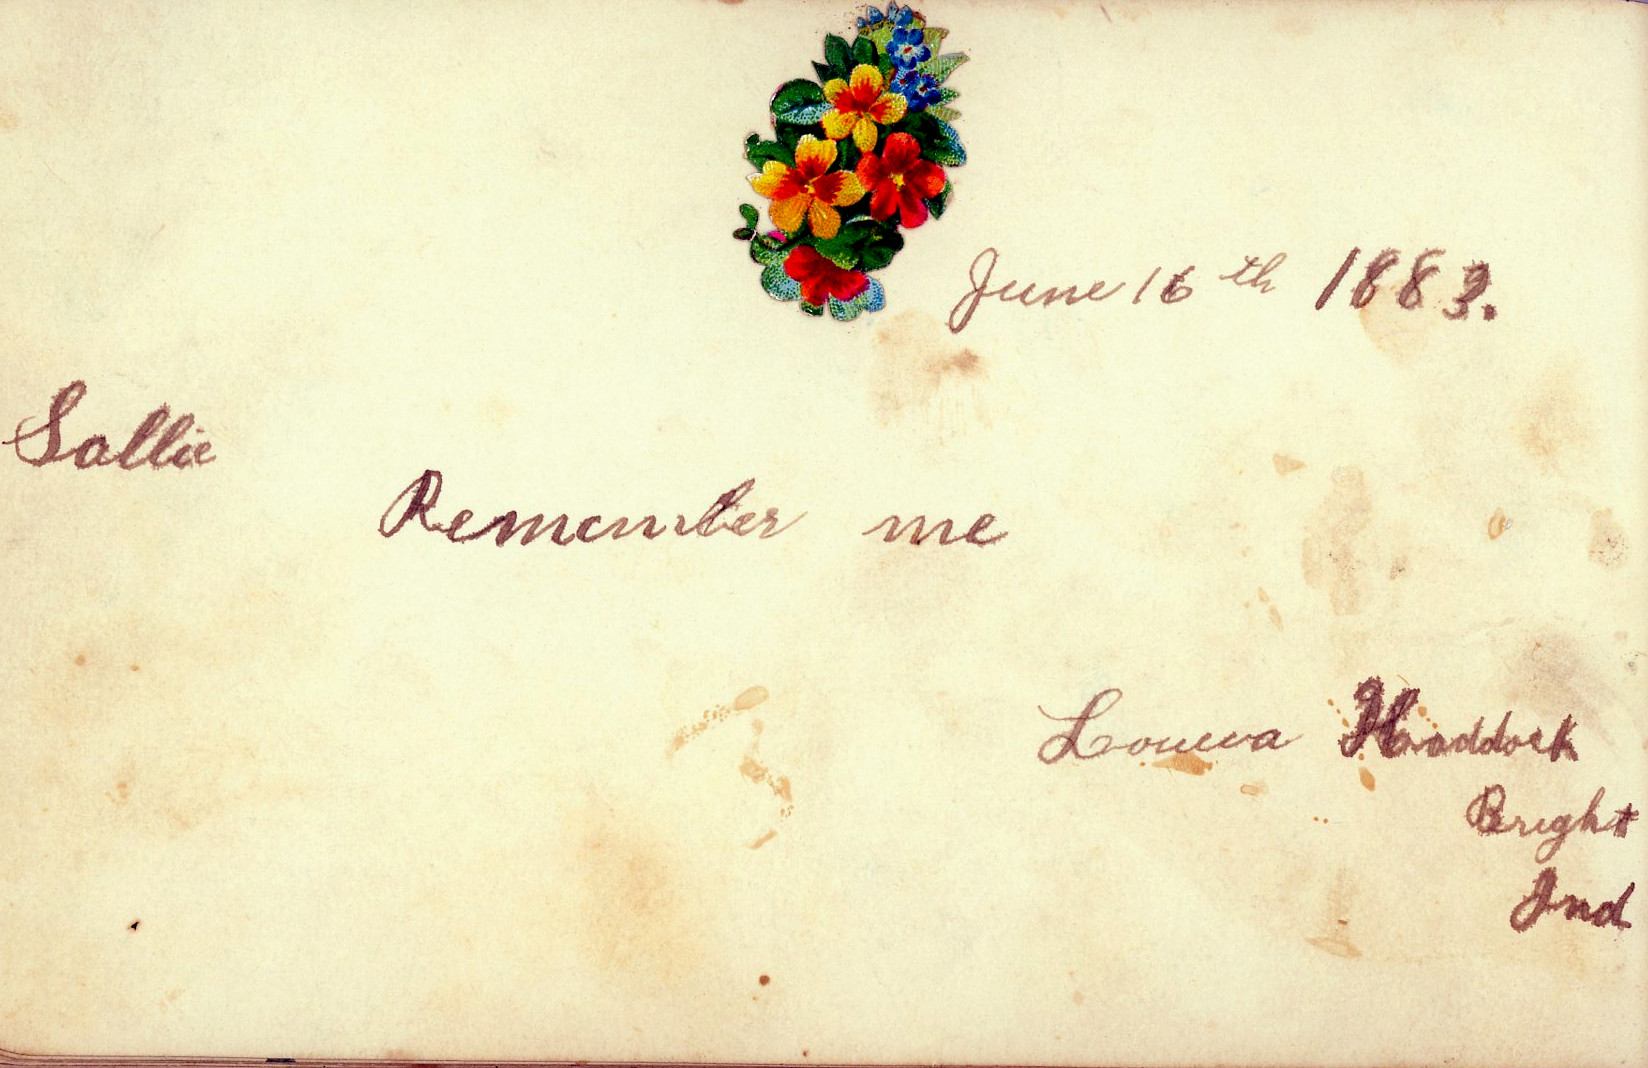 June 16th 1883.
Sallie
Remember me
Loueva Haddock
Bright
Ind